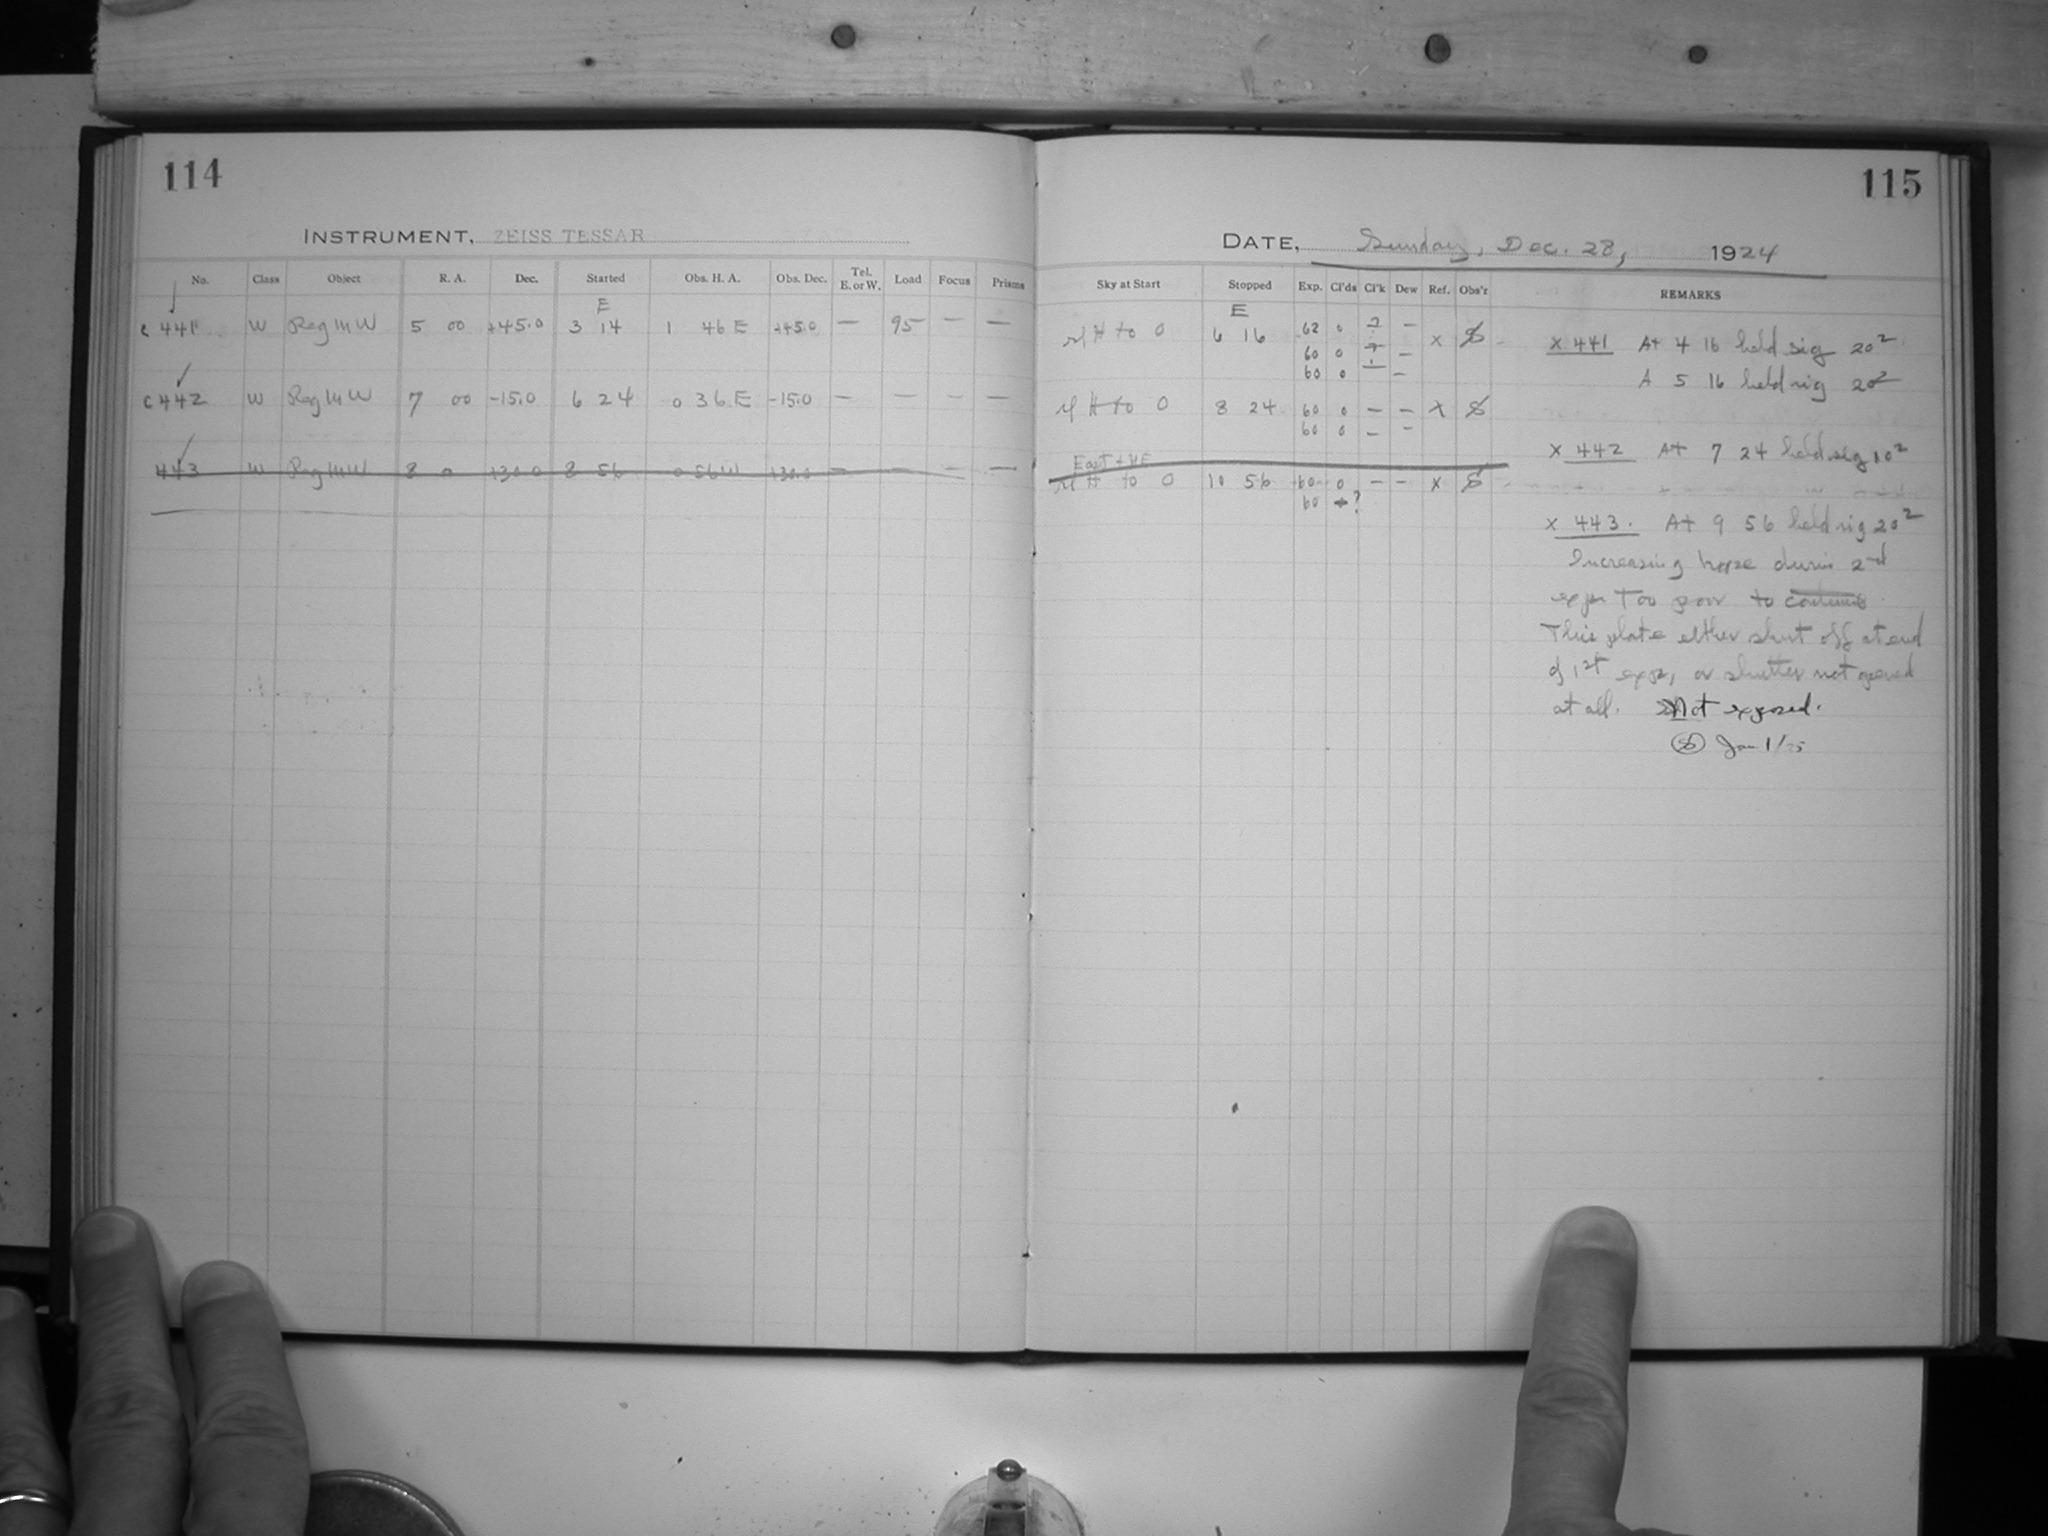 114
INSTRUMENT, ZEISS TESSAR
No. Class Object R. A. Dec. Started Obs. H. A. Obs. Dec. Tel. E. or W. Load Focus Prisms
E
c 441 W Reg M W 5 00 +45.0 3 14 1 46 E +45.0 — 95 — —
c 442 W Reg M W 7 00 -15.0 6 24 0 36 E -15.0 — — — —
443 W Reg M W 8 0 +30.0 8 56 0 56 W +30.0 — — — —
115
DATE, Sunday, Dec. 28, 1924
Sky at Start Stopped Exp. Cl'ds Cl'k Dew Ref. Obs'r REMARKS
E
H to 0 6 16 62 0 ? — x
60 0 —
60 0 —
H to 0 8 24 60 0 — — x
60 0 — —
East + NE
H to 0 10 56 60 0 — — x
60 + ?
x 441 At 4 16 held sig 20²
A 5 16 held sig 20²
x 442 At 7 24 held sig 10²
x 443. At 9 56 held sig 20²
Increasing haze during 2nd
expr Too poor to continue
This plate either shut off at end
of 1st expr, or shutter not opened
at all. Not exposed.
Jan 1/25